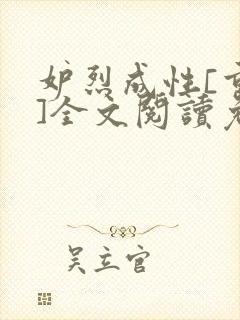 妒烈成性[重
]全文閱讀免
吴立官